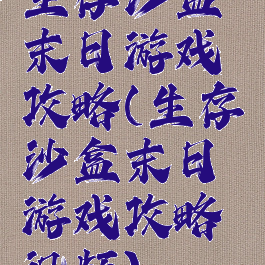 生存沙盒
末日游戏
攻略(生存
沙盒末日
游戏攻略
视频)